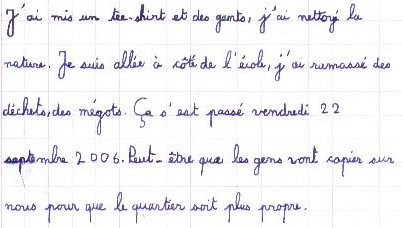 J'ai mis un tee-shirt et des gants, j'ai nettoyé la
nature. Je suis allée à côté de l'école, j'ai ramassé des
déchets, des mégots. Ça s'est passé vendredi 22
septembre 2006. Peut-être que les gens vont copier sur
nous pour que le quartier soit plus propre.